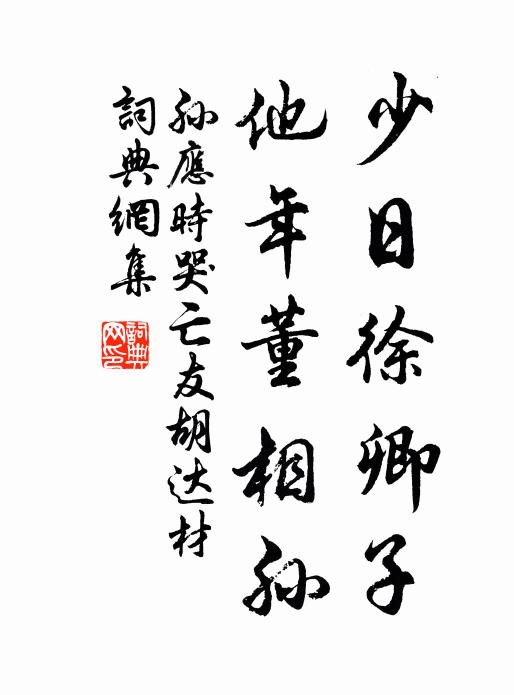 少日徐卿子
他年董相孙
孙應時哭亡友胡达材
詞典網集
詞典网印